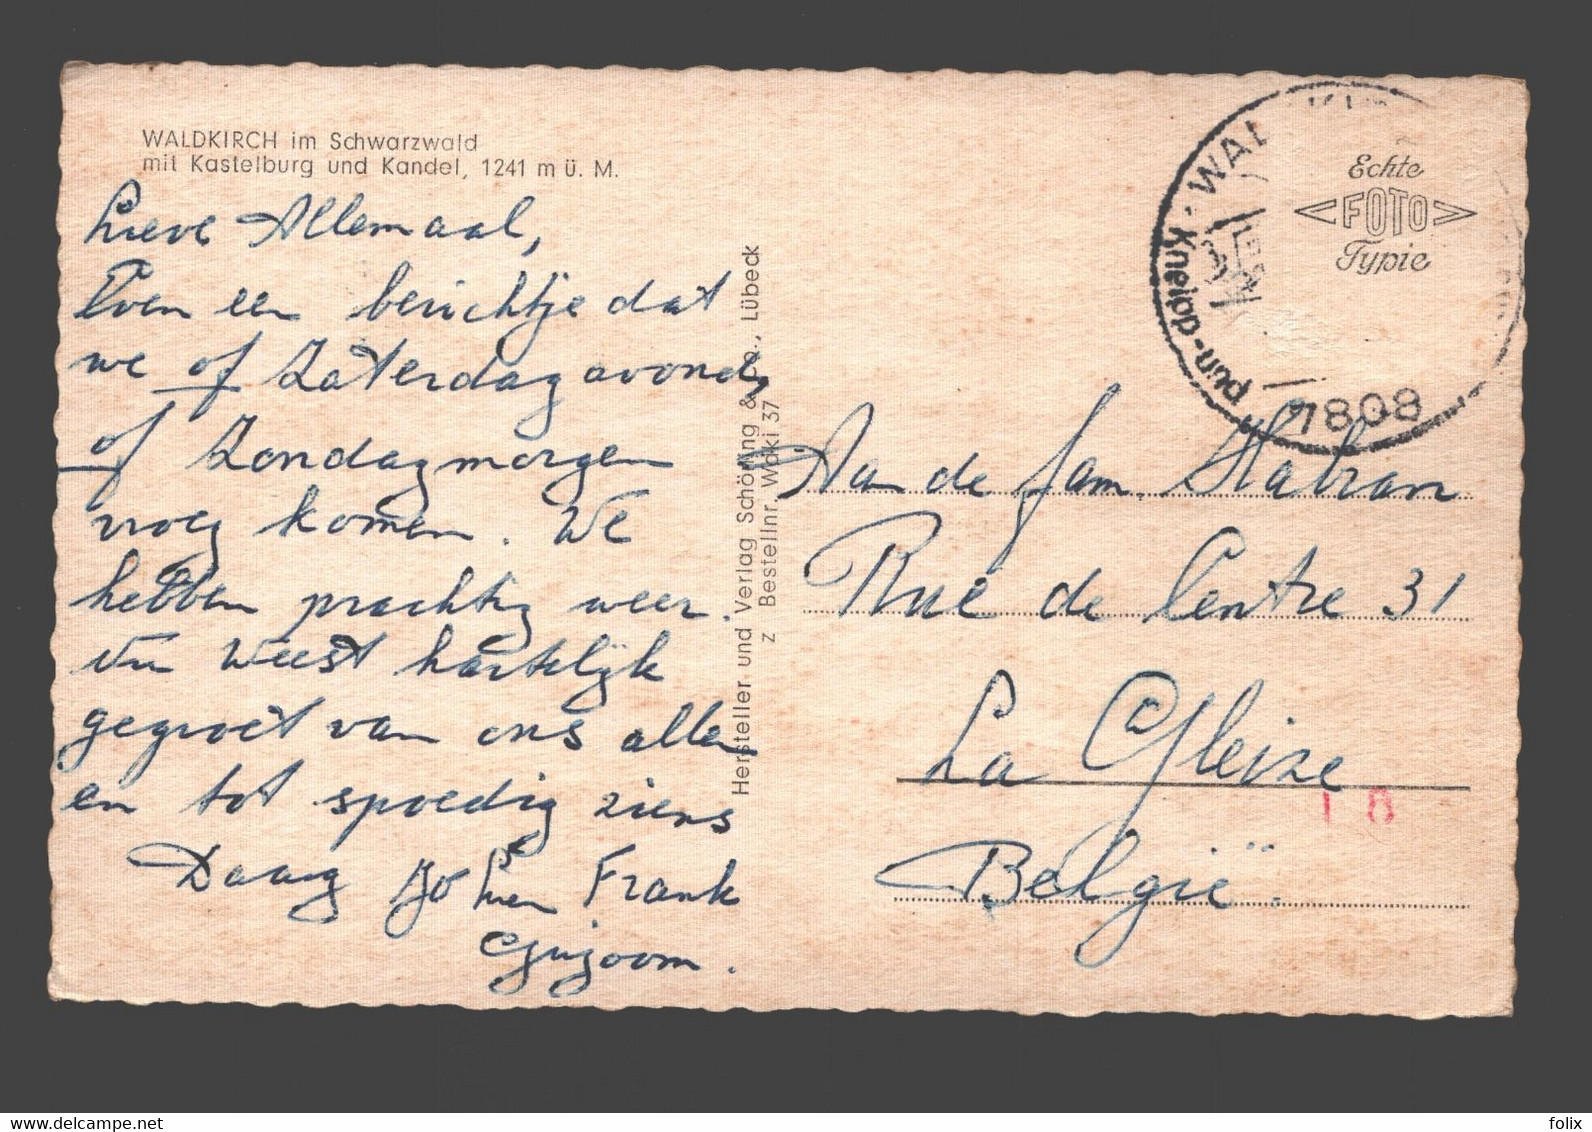 WALDKIRCH im Schwarzwald
mit Kastelburg und Kandel, 1241 m ü. M.
Lieve Allemaal,
Even een berichtje dat
we of Zaterdagavond,
of Zondagmorgen
vroeg komen. We
hebben prachtig weer.
weest hartelijk
gegroet van ons allen
en tot spoedig ziens
Daag Jo Lien Frank
Hersteller und Verlag Schöning & Co., Lübeck
z Bestellnr. Waki 37
Echte
FOTO
Typie
7808
Aan de fam. Habran
Rue de Centre 31
La Gleize
België.